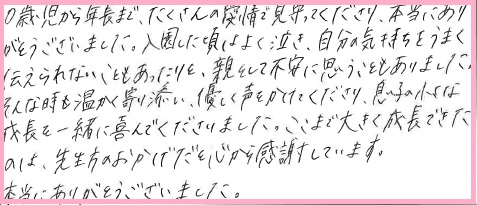 0歳児から年長まで、たくさんの愛情で見守ってくださり、本当にあり
がとうございました。入園した頃はよく泣き、自分の気持ちをうまく
伝えられないこともあったりと、親として不安に思うこともありました。
そんな時も温かく寄り添い、優しく声をかけてくださり、息子の小さな
成長を一緒に喜んでくださいました。ここまで大きく成長できた
のは、先生方のおかげだと心から感謝しています。
本当にありがとうございました。